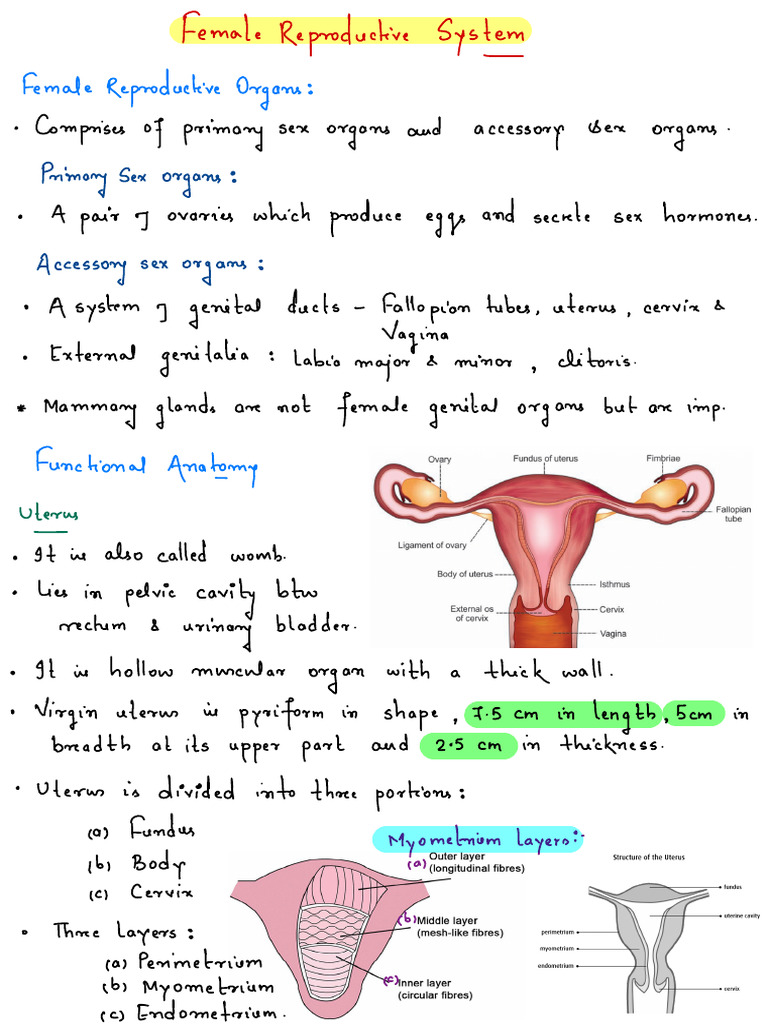 Female Reproductive System
Female Reproductive Organs:
• Comprises of primary sex organs and accessory sex organs.
Primary Sex organs:
• A pair of ovaries which produce eggs and secrete sex hormones.
Accessory sex organs:
• A system of genital ducts - Fallopion tubes, uterus, cervix &
Vagina
• External genitalia : Labia major & minor, clitoris.
* Mammary glands are not female genital organs but are imp.
Functional Anatomy
Ovary
Fundus of uterus
Fimbriae
Fallopian
tube
Ligament of ovary
Body of uterus
Isthmus
External os
of cervix
Cervix
Vagina
Uterus
• It is also called womb.
• Lies in pelvic cavity btw
rectum & urinary bladder.
• It is hollow muscular organ with a thick wall.
• Virgin uterus is pyriform in shape, 7.5 cm in length, 5cm in
breadth at its upper part and 2.5 cm in thickness.
• Uterus is divided into three portions:
(a) Fundus
(b) Body
(c) Cervix
• Three layers:
(a) Perimetrium
(b) Myometrium
(c) Endometrium.
Myometrium layers:
(a) Outer layer
(longitudinal fibres)
(b) Middle layer
(mesh-like fibres)
(c) Inner layer
(circular fibres)
Structure of the Uterus
fundus
uterine cavity
perimetrium
myometrium
endometrium
cervix